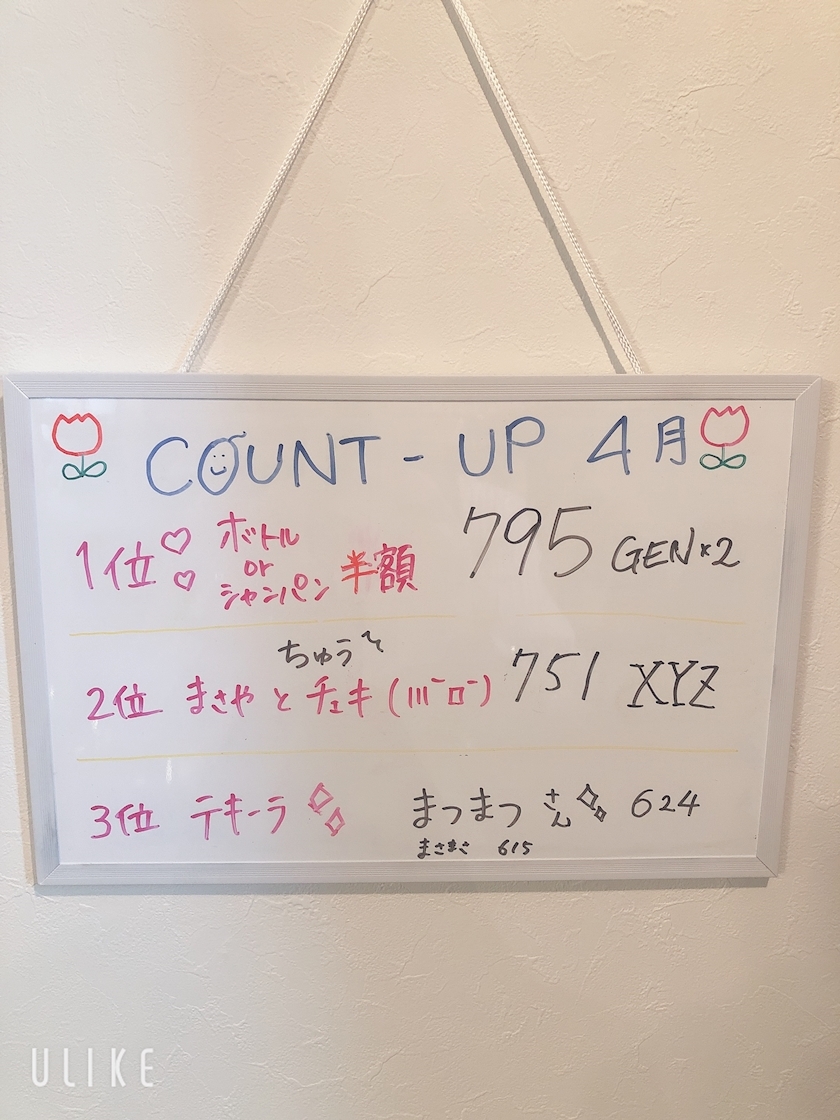 COUNT - UP 4月
1位♡♡ ボトル or シャンパン 半額 795 GEN×2
ちゅうそ
2位 まさや と チェキ (lll¯ロ¯) 751 XYZ
3位 テキーラ まつまつ さん 624
まさまさ 615
ULIKE